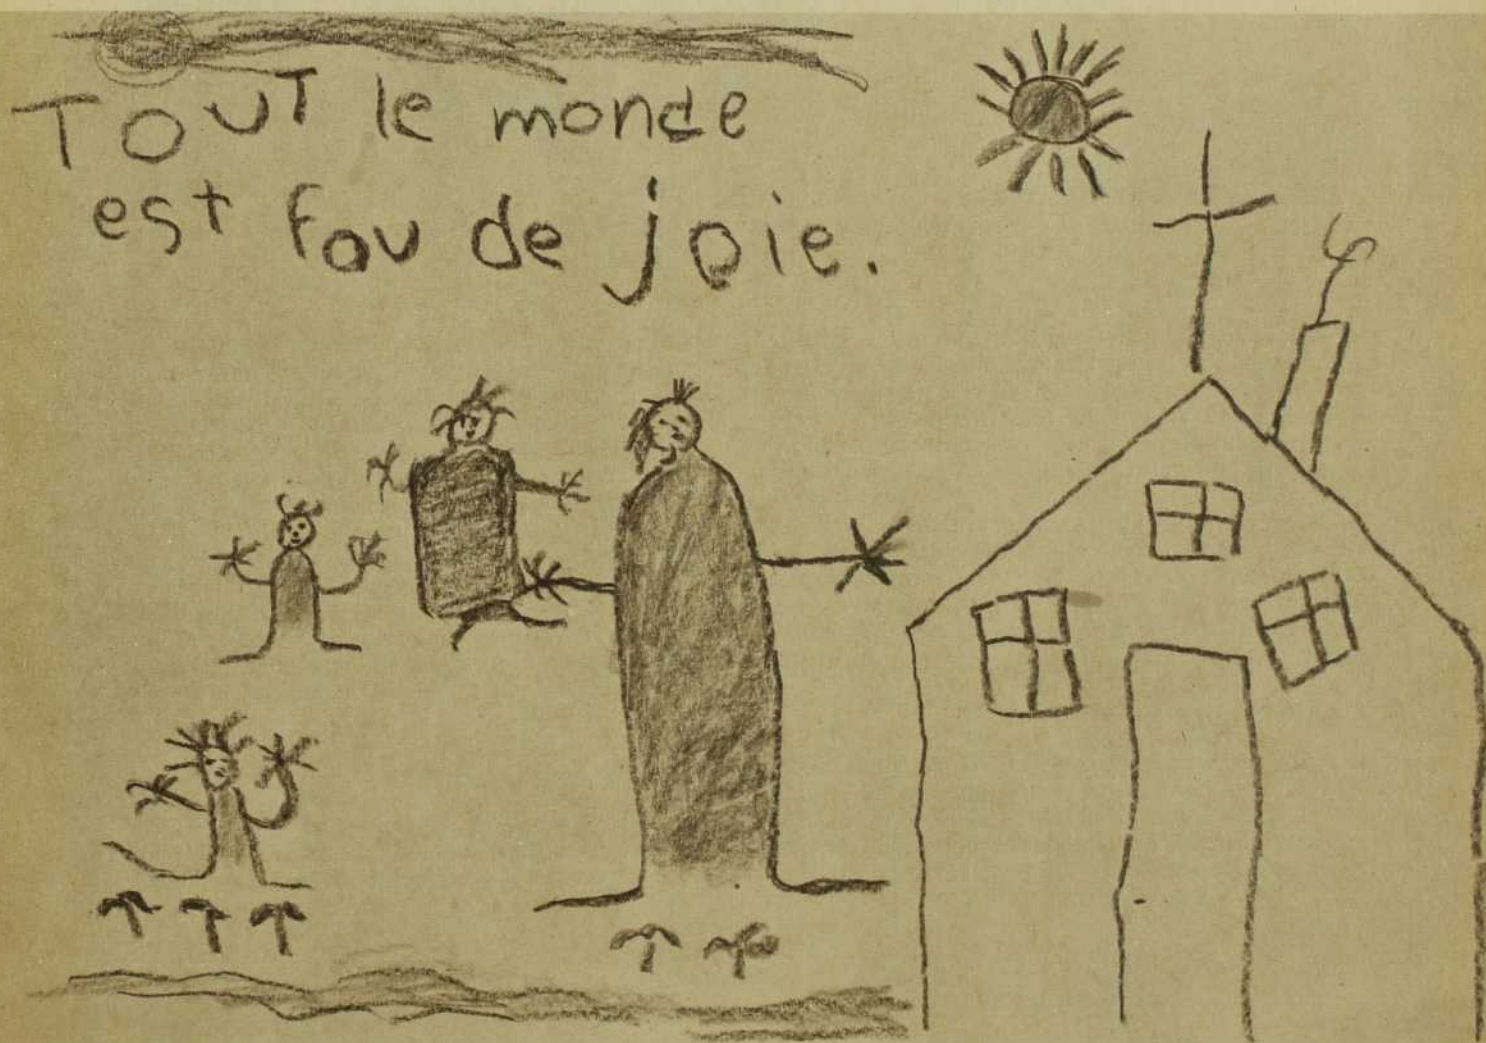 TOUT le monde
est fou de joie.